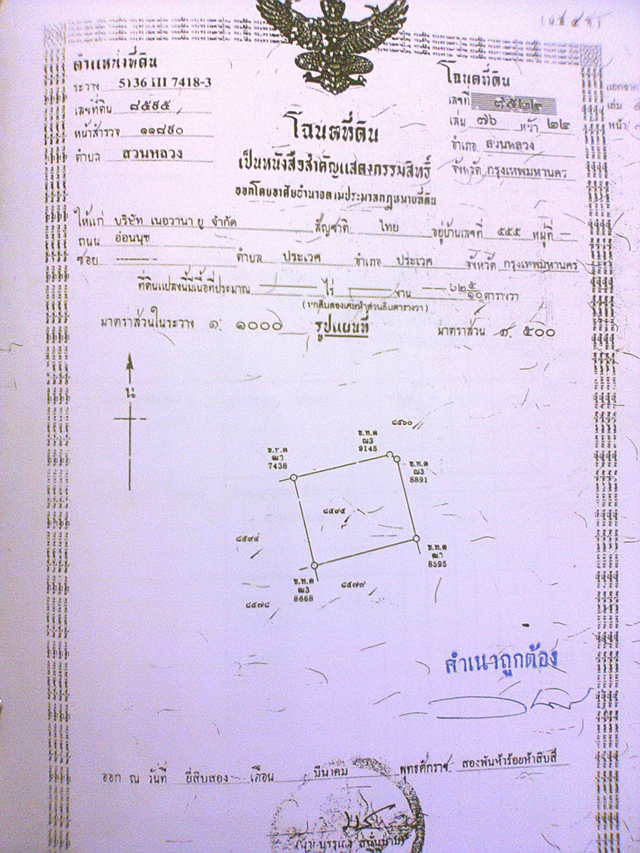 ตำแหน่งที่ดิน
ระวาง 5136 III 7418-3
เลขที่ดิน ๘๕๙๕
หน้าสำรวจ ๑๑๘๙๐
ตำบล สวนหลวง
โฉนดที่ดิน
เลขที่
เล่ม ๗๖ หน้า ๒๒
อำเภอ สวนหลวง
จังหวัด กรุงเทพมหานคร
โฉนดที่ดิน
เป็นหนังสือสำคัญแสดงกรรมสิทธิ์
ออกโดยอาศัยอำนาจตามประมวลกฎหมายที่ดิน
ให้แก่ บริษัท เนอวานา ยู จำกัด สัญชาติ ไทย อยู่บ้านเลขที่ ๕๕๕ หมู่ที่ —
ถนน อ่อนนุช
ซอย ------- ตำบล ประเวศ อำเภอ ประเวศ จังหวัด กรุงเทพมหานคร
ที่ดินแปลงนี้มีเนื้อที่ประมาณ — ไร่ — งาน ตารางวา
(หกสิบสองเศษห้าส่วนสิบตารางวา)
มาตราส่วนในระวาง ๑: ๑๐๐๐ รูปแผนที่ มาตราส่วน ๑: ๕๐๐
น
๘๕๖๐
ข.ท.ด
ฒ3
9145
ฒ7
7438
ข.ท.ด
ฒ3
8891
๘๕๙๕
๘๕๙๔
ข.ท.ด
ฒ7
8595
ข.ท.ด
ฒ3
8668
๘๕๗๗
๘๕๗๘
สำเนาถูกต้อง
ออก ณ วันที่ ยี่สิบสอง เดือน มีนาคม พุทธศักราช สองพันห้าร้อยห้าสิบสี่